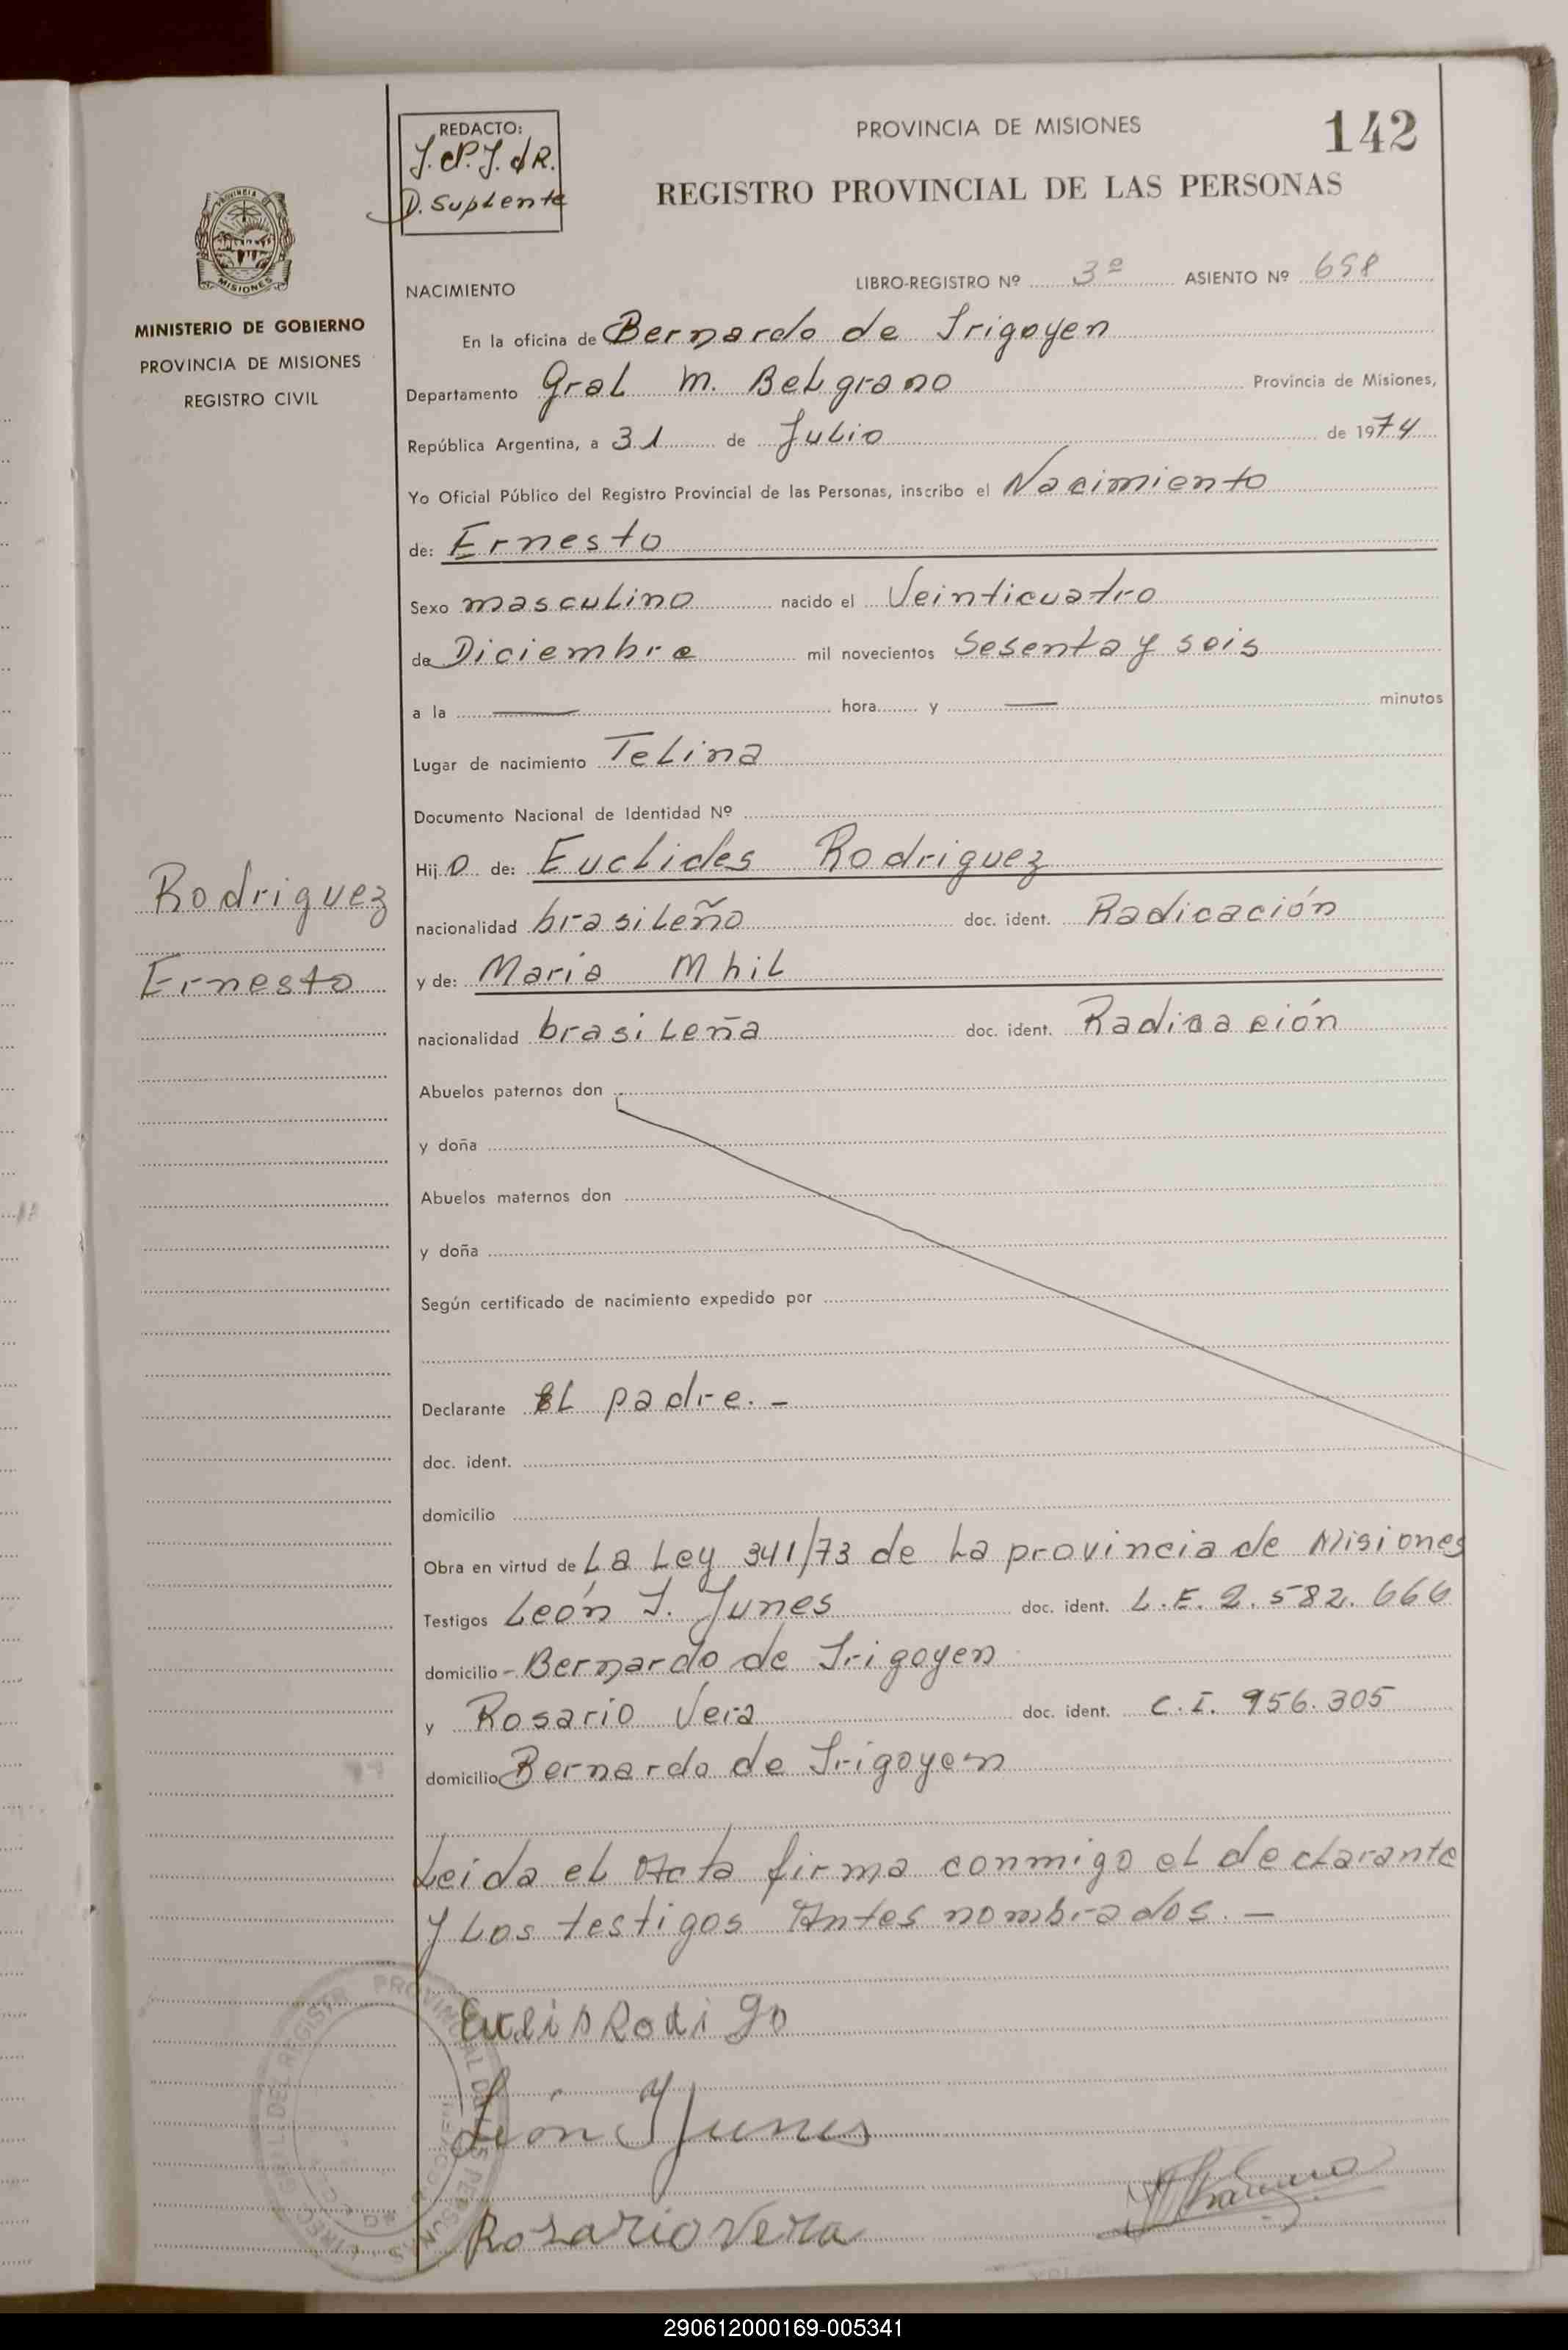 REDACTO:
J. P. J. d R.
D. Suplente
PROVINCIA DE MISIONES
142
REGISTRO PROVINCIAL DE LAS PERSONAS
MISIONES
MINISTERIO DE GOBIERNO
PROVINCIA DE MISIONES
REGISTRO CIVIL
NACIMIENTO
LIBRO-REGISTRO Nº 3º ASIENTO Nº 658
En la oficina de Bernardo de Irigoyen
Departamento Gral M. Belgrano Provincia de Misiones,
República Argentina, a 31 de Julio de 1974
Yo Oficial Público del Registro Provincial de las Personas, inscribo el Nacimiento
de: Ernesto
Sexo masculino nacido el Veinticuatro
de Diciembre mil novecientos Sesenta y seis
a la — hora y — minutos
Lugar de nacimiento Telina
Documento Nacional de Identidad Nº
Hijo de: Euclides Rodriguez
Rodriguez
nacionalidad brasileño doc. ident. Radicación
Ernesto
y de: Maria Mhil
nacionalidad brasileña doc. ident. Radicación
Abuelos paternos don
y doña
Abuelos maternos don
y doña
Según certificado de nacimiento expedido por
Declarante El padre. -
doc. ident.
domicilio
Obra en virtud de La Ley 341/73 de la provincia de Misiones
Testigos León J. Junes doc. ident. L.E. 2.582.666
domicilio - Bernardo de Irigoyen
y Rosario Vera doc. ident. C.I. 956.305
domicilio Bernardo de Irigoyen
Leida el Acta firma conmigo el declarante
y los testigos Antes nombrados. —
Euclis Rodi go
León J Junes
Rosario Vera
290612000169-005341